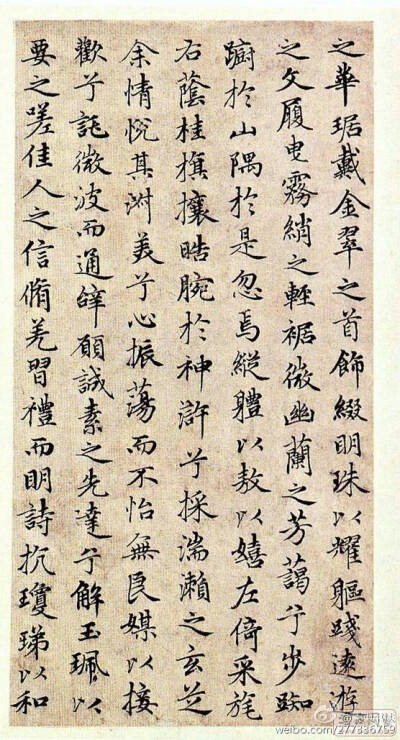 之華琚戴金翠之首飾綴明珠以耀軀踐遠游
之文履曳霧綃之輕裾微幽蘭之芳藹兮步踟
蹰於山隅於是忽焉縱軆以敖以嬉左倚采旄
右蔭桂旗攘皓腕於神滸兮採湍瀨之玄芝
余情悅其淑美兮心振蕩而不怡無良媒以接
歡兮託微波而通辭願誠素之先達兮解玉珮以
要之嗟佳人之信脩羌習禮而明詩抗瓊珶以和